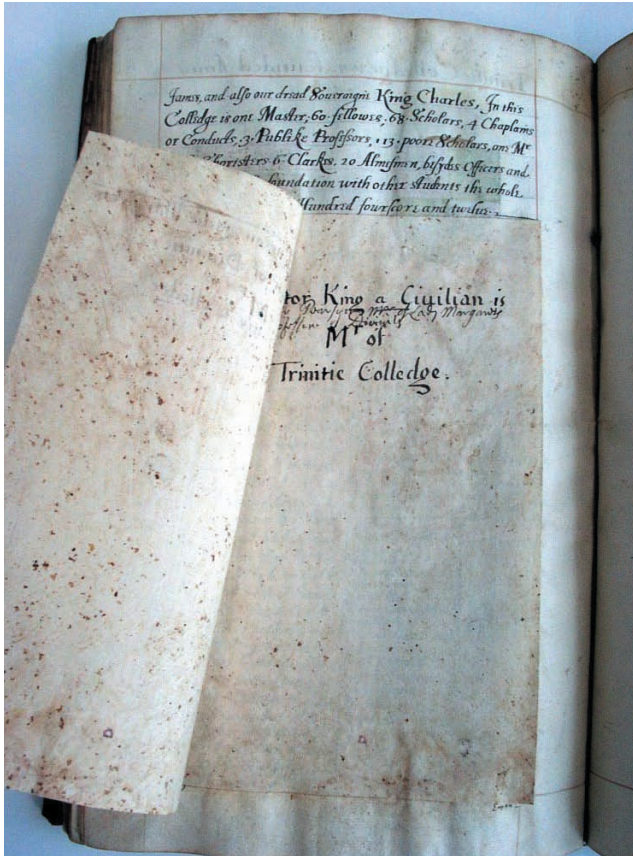 James, and also our dread Soveraigne King Charles, In this
Colledge is one Master, 60. fellowes, 68. Scholars, 4 Chaplains
or Conducts, 3. Publike Professors, 13. poore Scholars, one Mr
Choristers 6. Clarkes, 20 Almesmen, besydes Officers and
oundation with other students the whole
Hundred fourscore and twelve.
tor King a Civilian is
of Lady Margarets
Mr of
Trinitie Colledge.